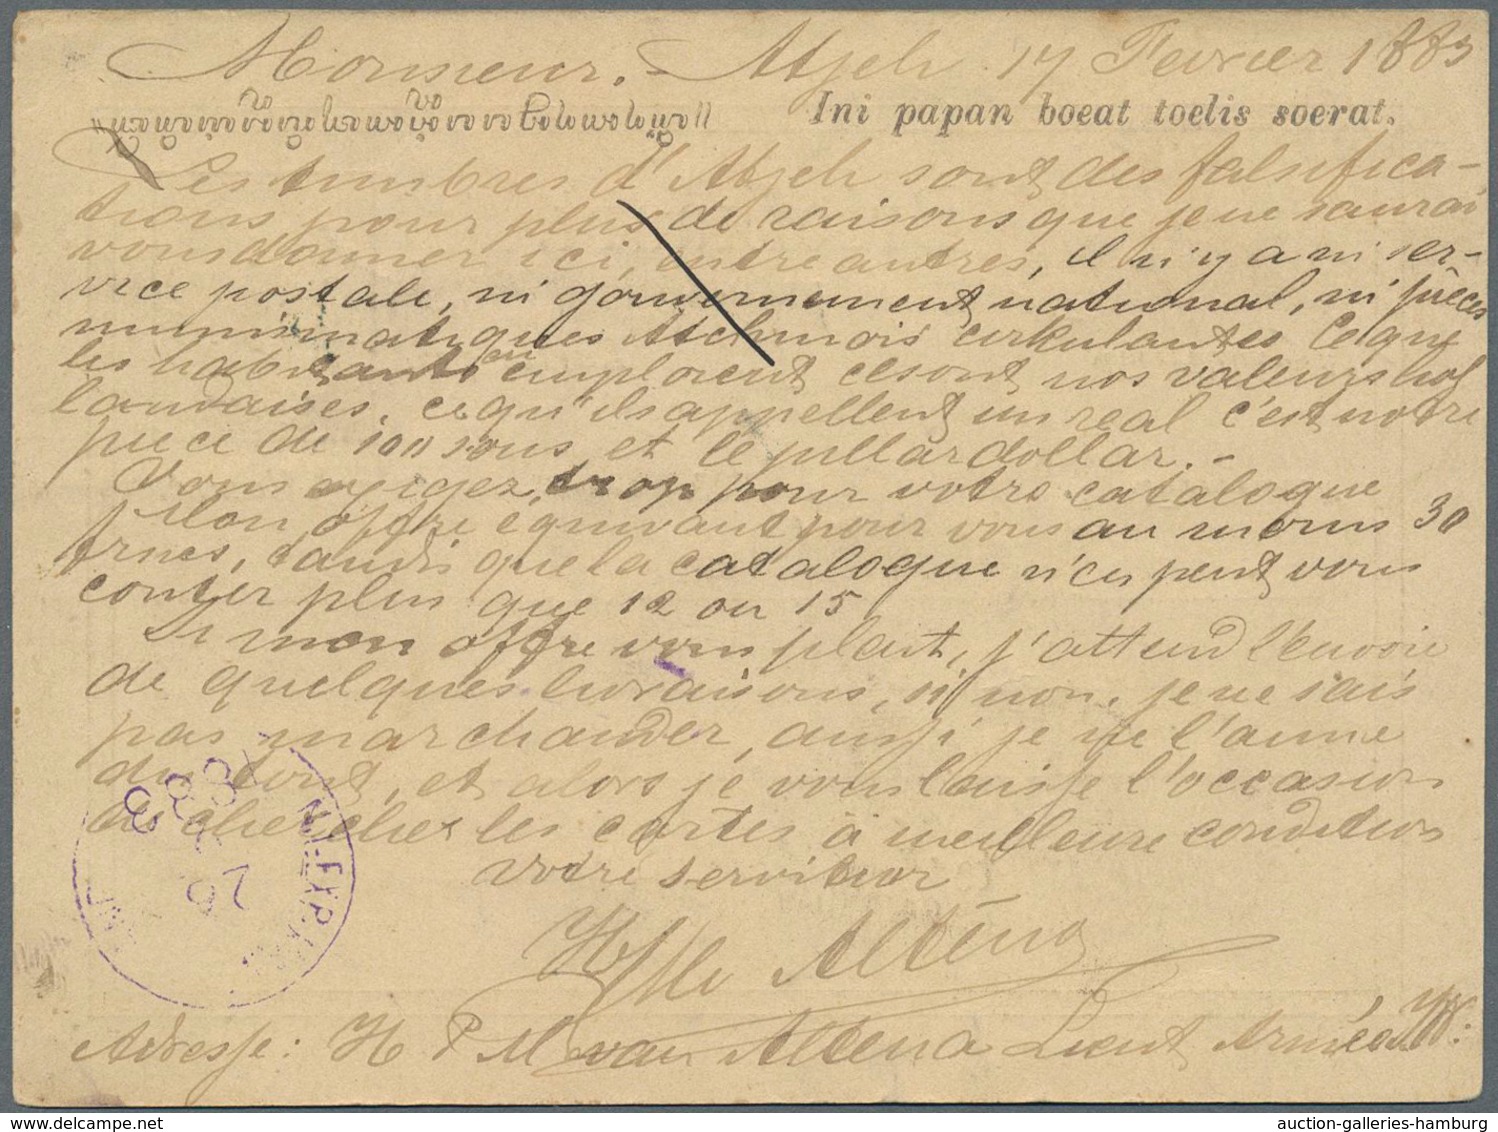 Monsieur. – Atjeh 17 Fevrier 1883
Ini papan boeat toelis soerat.
Les timbres d'Atjeh sont des falsifica-
tions pour plus de raisons que je ne saurai
vous donner ici, entre autres, il n'y a ni ser-
vice postale, ni gouvernement national, ni pièces
numismatiques Atchinois cirkulantes. Ce que
les habitants emploient ce sont nos valeurs hol
landaises, ce qu'ils appellent un real c'est notre
piece de 100 sous et le pillardollar. –
Vous exigez trop pour votre catalogue
Mon offre équivaut pour vous au moins 30
frncs, tandis que la catalogue n'ici peut vous
couter plus que 12 ou 15
Si mon offre vous plait, j'attend l'envoie
de quelques livraisons, si non, je ne sais
pas marchander, aussi je ne l'aime
du tout, et alors je vous laisse l'occasion
de chercher les cartes à meilleure condition
votre serviteur
Altena
Adresse: H P M van Altena Lieut Armée
auction-galleries-hamburg